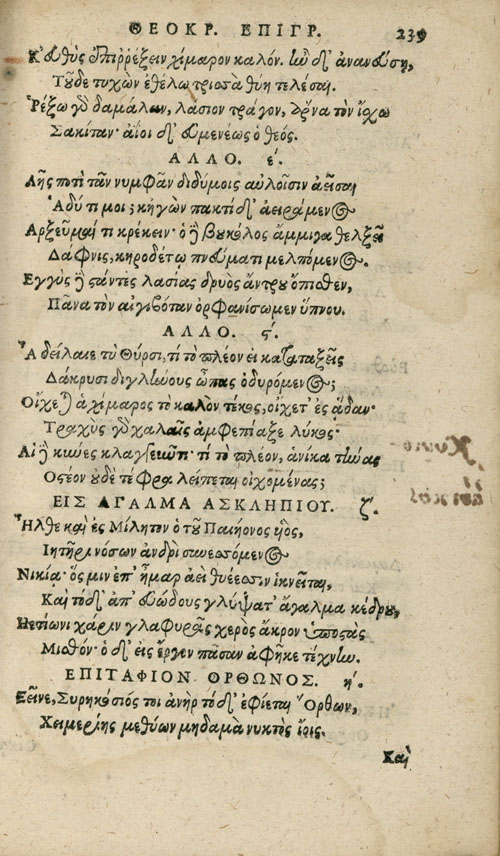 ΘΕΟΚΡ. ΕΠΙΓΡ. 239
Κ' εὐθὺς ἐπιῤῥέξειν χίμαρον καλόν. ἢν δ' ἀνανεύσῃ,
Τοῦδε τυχὼν ἐθέλω τρισσὰ θύη τελέσαι.
Ῥέξω γὸ δαμάλαν, λάσιον τράγον, ἄρνα τὸν ἴσχω
Σακίταν· ἀΐοι δ' εὐμενέως ὁ θεός.
ΑΛΛΟ. ε΄.
Λῇς ποτὶ τᾶν νυμφᾶν διδύμοις αὐλοῖσιν ἀεῖσαι
Ἁδύ τί μοι; κἠγὼν πακτίδ' ἀειράμενος
Ἀρξεῦμαί τι κρέκειν· ὁ δὲ βουκόλος ἄμμιγα θελξεῖ
Δάφνις, κηροδέτῳ πνεύματι μελπόμενος.
Ἐγγὺς δὲ στάντες λασίας δρυὸς ἄντρου ὄπισθεν,
Πᾶνα τὸν αἰγιβόταν ὀρφανίσωμεν ὕπνου.
ΑΛΛΟ. ϛ΄.
Ἆ δείλαιε τὺ Θύρσι, τί τὸ πλέον εἰ καταταξεῖς
Δάκρυσι διγλήνους ὦπας ὀδυρόμενος;
Οἴχεται ἁ χίμαρος τὸ καλὸν τέκος, οἴχετ' ἐς ᾅδαν·
Τραχὺς γὸ χαλαῖς ἀμφεπίαξε λύκος·
Αἱ δὲ κύνες κλαγγεῦντι· τί τὸ πλέον, ἁνίκα τήνας
Ὀστέον οὐδὲ τέφρα λείπεται οἰχομένας;
ΕΙΣ ΑΓΑΛΜΑ ΑΣΚΛΗΠΙΟΥ. ζ΄.
Ἦλθε καὶ ἐς Μίλητον ὁ τοῦ Παιήονος υἱὸς,
Ἰητῆρι νόσων ἀνδρὶ συνεσσόμενος
Νικίᾳ· ὅς μιν ἐπ' ἦμαρ ἀεὶ θυέεσσιν ἱκνεῖται,
Καὶ τόδ' ἀπ' εὐώδους γλύψατ' ἄγαλμα κέδρου,
Ἠετίωνι χάριν γλαφυρᾶς χερὸς ἄκρον ὑποστὰς
Μισθόν· ὁ δ' εἰς ἔργον πᾶσαν ἀφῆκε τέχνην.
ΕΠΙΤΑΦΙΟΝ ΟΡΘΩΝΟΣ. η΄.
Ξεῖνε, Συρηκόσιός τοι ἀνὴρ τόδ' ἐφίεται Ὄρθων,
Χειμερίης μεθύων μηδαμὰ νυκτὸς ἴοις.
Καὶ